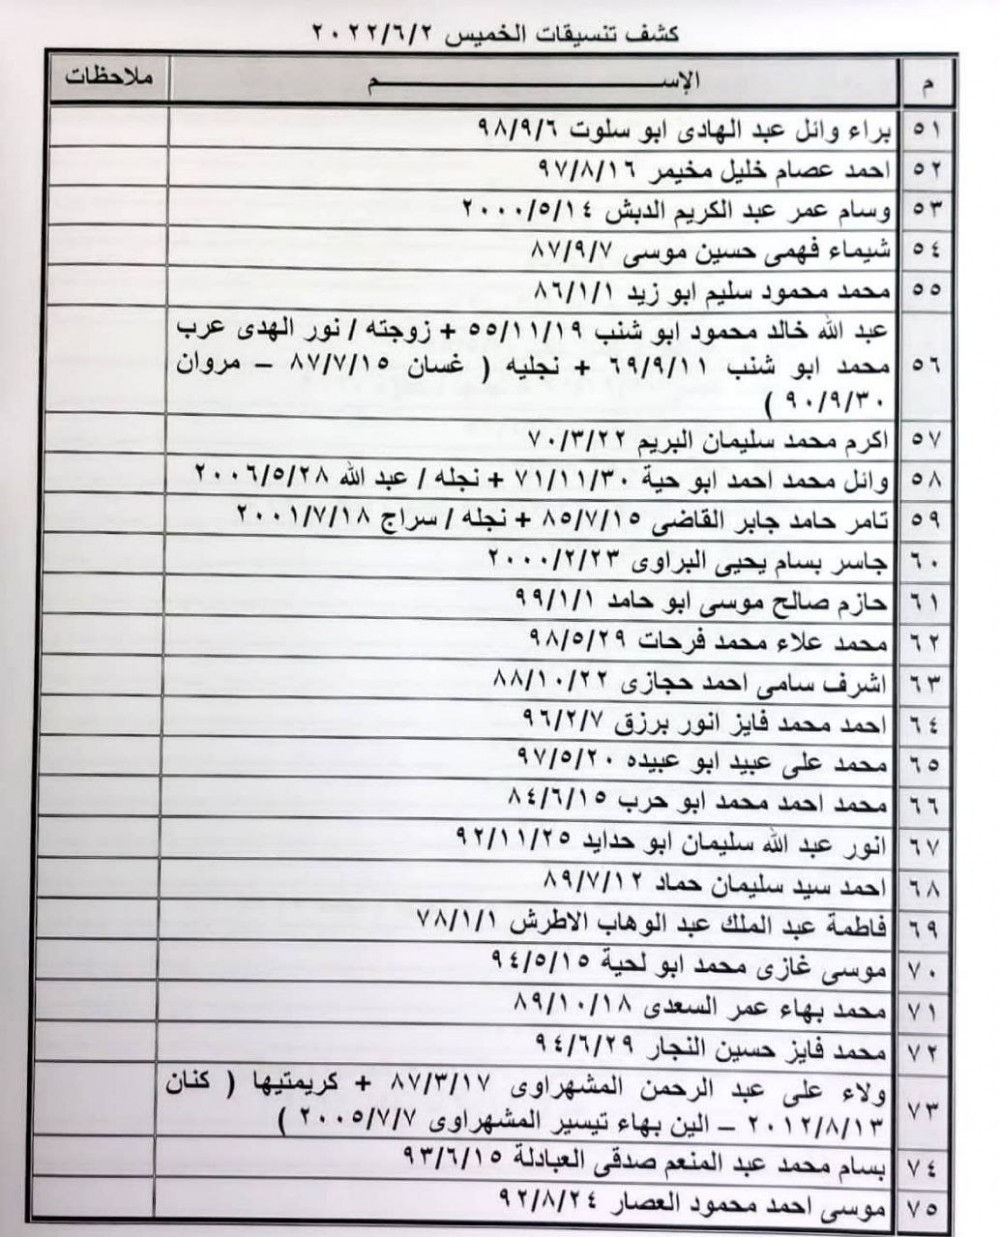 كشف تنسيقات الخميس ٢٠٢٢/٦/٢
م الإســـــم ملاحظات
٥١ براء وائل عبد الهادى ابو سلوت ٩٨/٩/٦
٥٢ احمد عصام خليل مخيمر ٩٧/٨/١٦
٥٣ وسام عمر عبد الكريم الدبش ٢٠٠٠/٥/١٤
٥٤ شيماء فهمى حسين موسى ٨٧/٩/٧
٥٥ محمد محمود سليم ابو زيد ٨٦/١/١
٥٦ عبد الله خالد محمود ابو شنب ٥٥/١١/١٩ + زوجته / نور الهدى عرب
محمد ابو شنب ٦٩/٩/١١ + نجليه ( غسان ٨٧/٧/١٥ – مروان
٩٠/٩/٣٠ )
٥٧ اكرم محمد سليمان البريم ٧٠/٣/٢٢
٥٨ وائل محمد احمد ابو حية ٧١/١١/٣٠ + نجله / عبد الله ٢٠٠٦/٥/٢٨
٥٩ تامر حامد جابر القاضى ٨٥/٧/١٥ + نجله / سراج ٢٠٠١/٧/١٨
٦٠ جاسر بسام يحيى البراوى ٢٠٠٠/٢/٢٣
٦١ حازم صالح موسى ابو حامد ٩٩/١/١
٦٢ محمد علاء محمد فرحات ٩٨/٥/٢٩
٦٣ اشرف سامى احمد حجازى ٨٨/١٠/٢٢
٦٤ احمد محمد فايز انور برزق ٩٦/٢/٧
٦٥ محمد على عبيد ابو عبيده ٩٧/٥/٢٠
٦٦ محمد احمد محمد ابو حرب ٨٤/٦/١٥
٦٧ انور عبد الله سليمان ابو حدايد ٩٢/١١/٢٥
٦٨ احمد سيد سليمان حماد ٨٩/٧/١٢
٦٩ فاطمة عبد الملك عبد الوهاب الاطرش ٧٨/١/١
٧٠ موسى غازى محمد ابو لحية ٩٤/٥/١٥
٧١ محمد بهاء عمر السعدى ٨٩/١٠/١٨
٧٢ محمد فايز حسين النجار ٩٤/٦/٢٩
٧٣ ولاء على عبد الرحمن المشهراوى ٨٧/٣/١٧ + كريمتيها ( كنان
٢٠١٢/٨/١٣ – الين بهاء تيسير المشهراوى ٢٠٠٥/٧/٧ )
٧٤ بسام محمد عبد المنعم صدقى العبادلة ٩٣/٦/١٥
٧٥ موسى احمد محمود العصار ٩٢/٨/٢٤